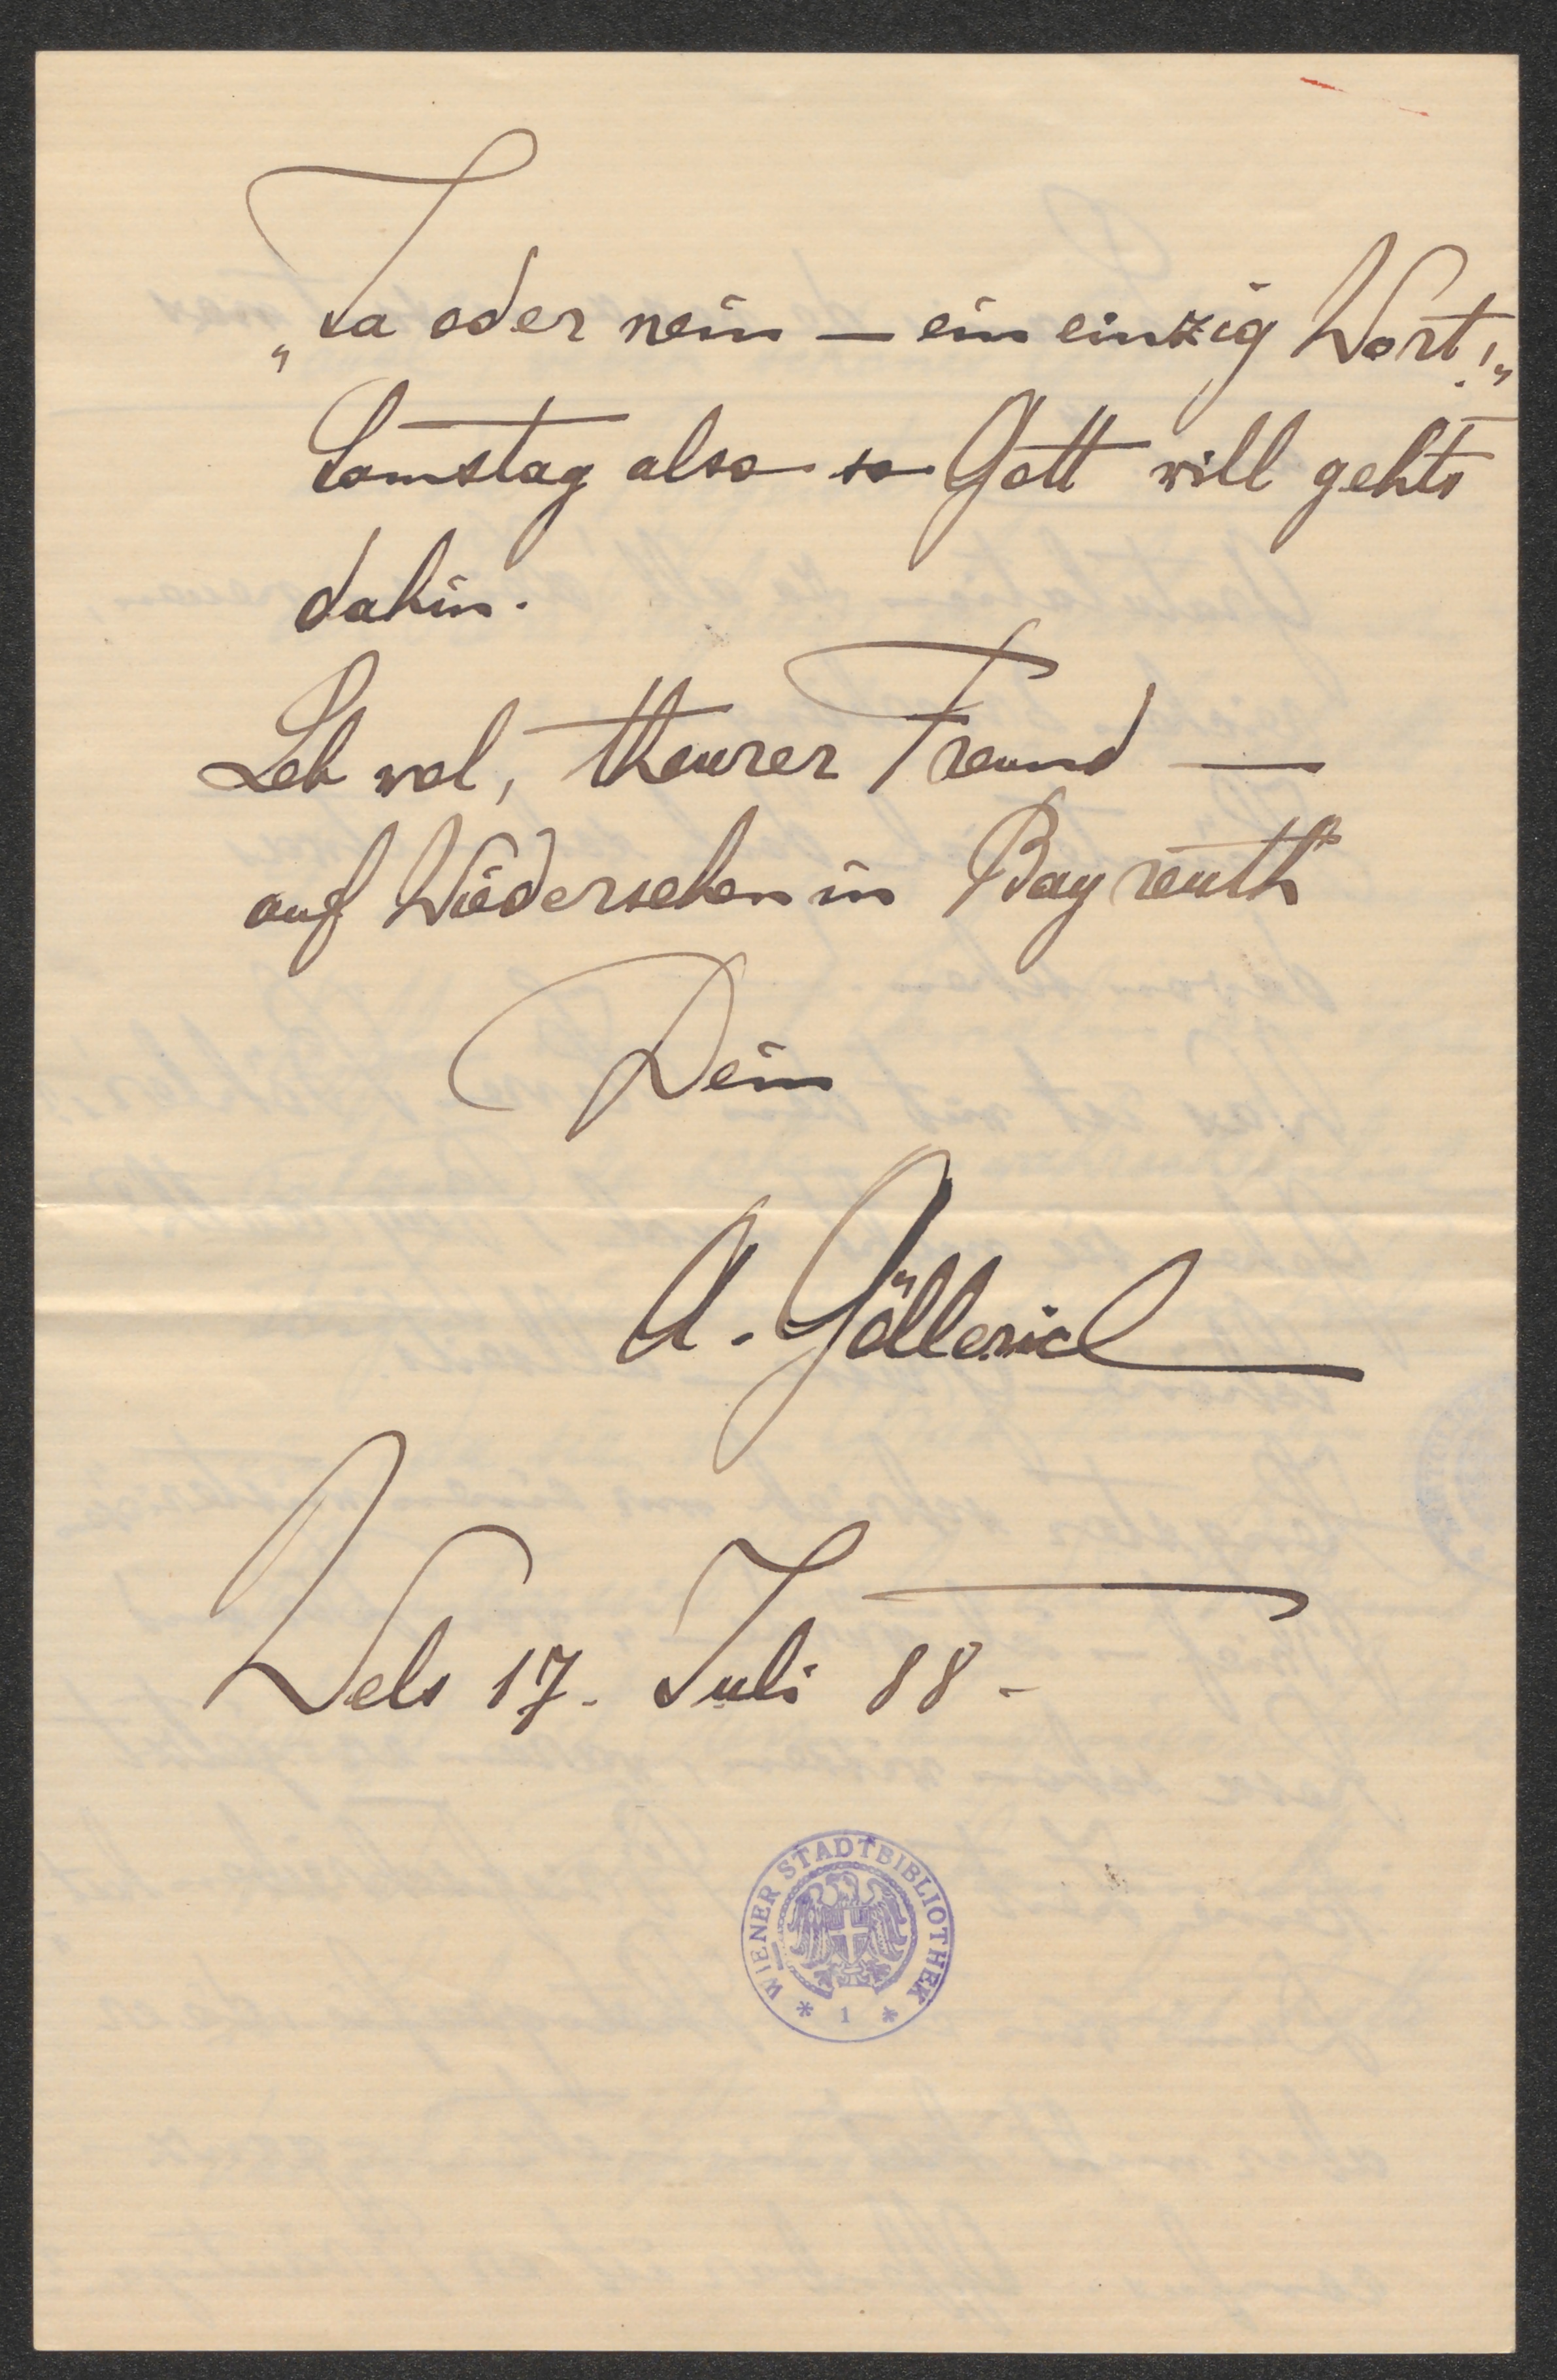 „Ja oder nein – ein einzig Wort!“
Samstag also so Gott will gehts
dahin.
Leb wol, theurer Freund –
auf Wiedersehen in Bayreuth
Dein
A. Göllerich
Wels 17. Juli 88 –
WIENER STADTBIBLIOTHEK
* 1 *